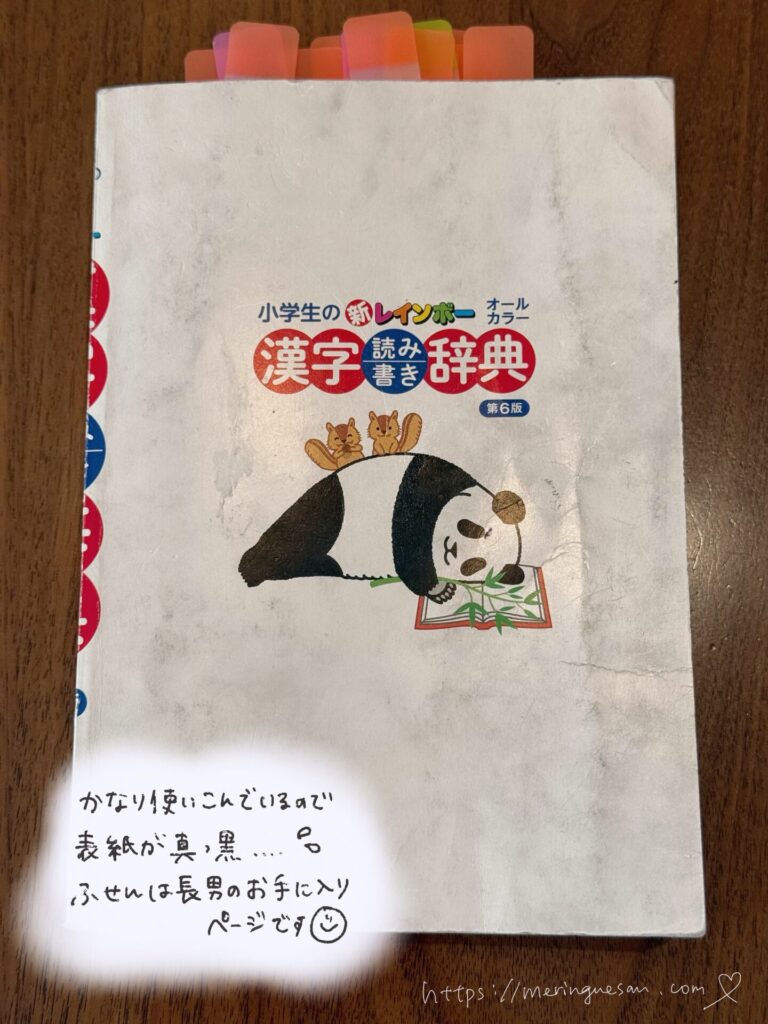 小学生の 新レインボー オールカラー
漢字 読み書き 辞典
第6版
かなり使いこんでいるので
表紙が真っ黒....
ふせんは長男のお手に入り
ページです
https://meringuesan.com